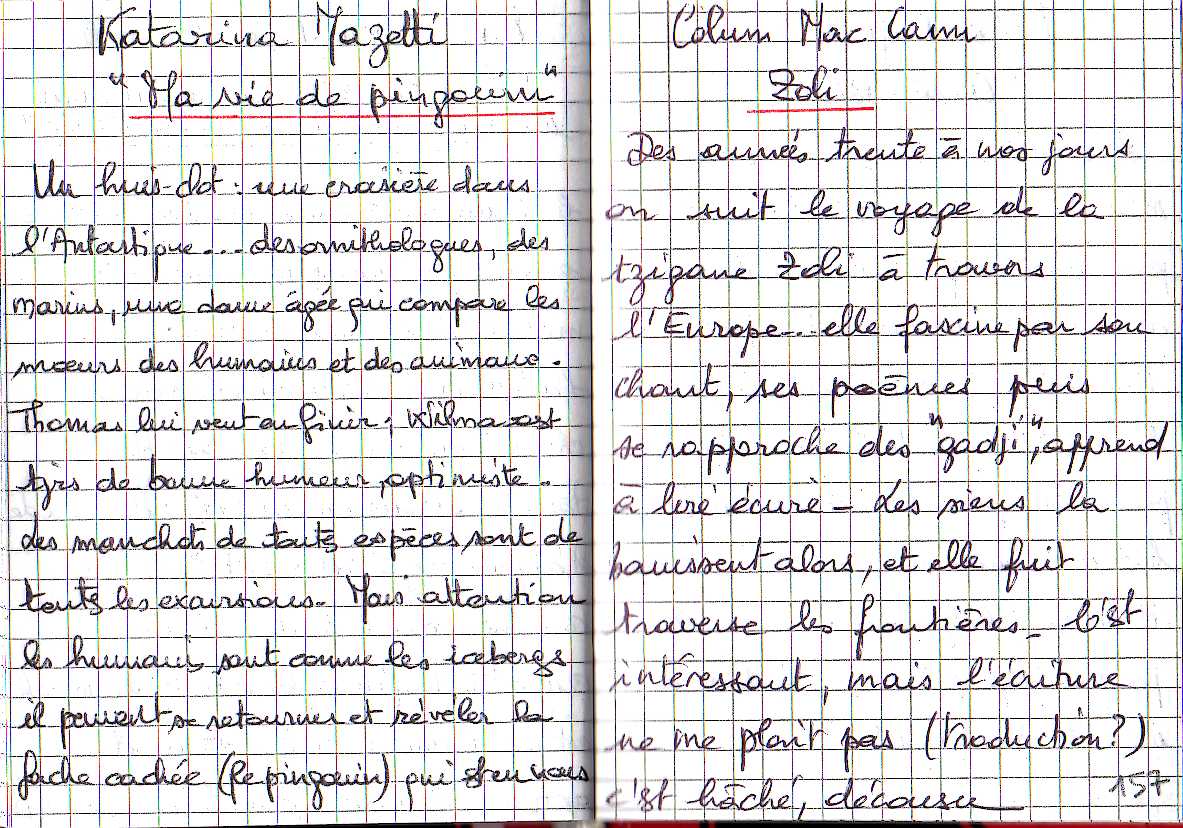 Katarina Mazetti
"Ma vie de pingouin"
Un huis-clot : une croisière dans
l'Antartique... des ornithologues, des
marins, une dame âgée qui compare les
mœurs des humains et des animaux.
Thomas lui veut en finir, Wilma est
tjrs de bonne humeur, optimiste.
des manchots de touts espèces sont de
touts les excursions. Mais attention
les humains sont comme les icebergs
il peuvent se retourner et révéler la
fache cachée (le pingouin) qui en nous
Colum Mac Cann
Zoli
Des années trente à nos jours
on suit le voyage de la
tzigane Zoli à travers
l'Europe... elle fascine par son
chant, ses poèmes puis
se rapproche des "gadji", apprend
à lire écrire - Les siens la
banissent alors, et elle fuit
traverse les frontières - C'est
intéressant, mais l'écriture
ne me plaît pas (traduction?)
c'est hâché, décousu
157